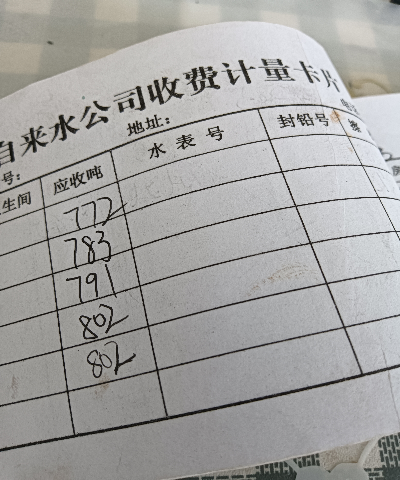 自来水公司收费计量卡片
号: 地址:
生间 应收吨 水表号 封铅号
772
783
791
802
802